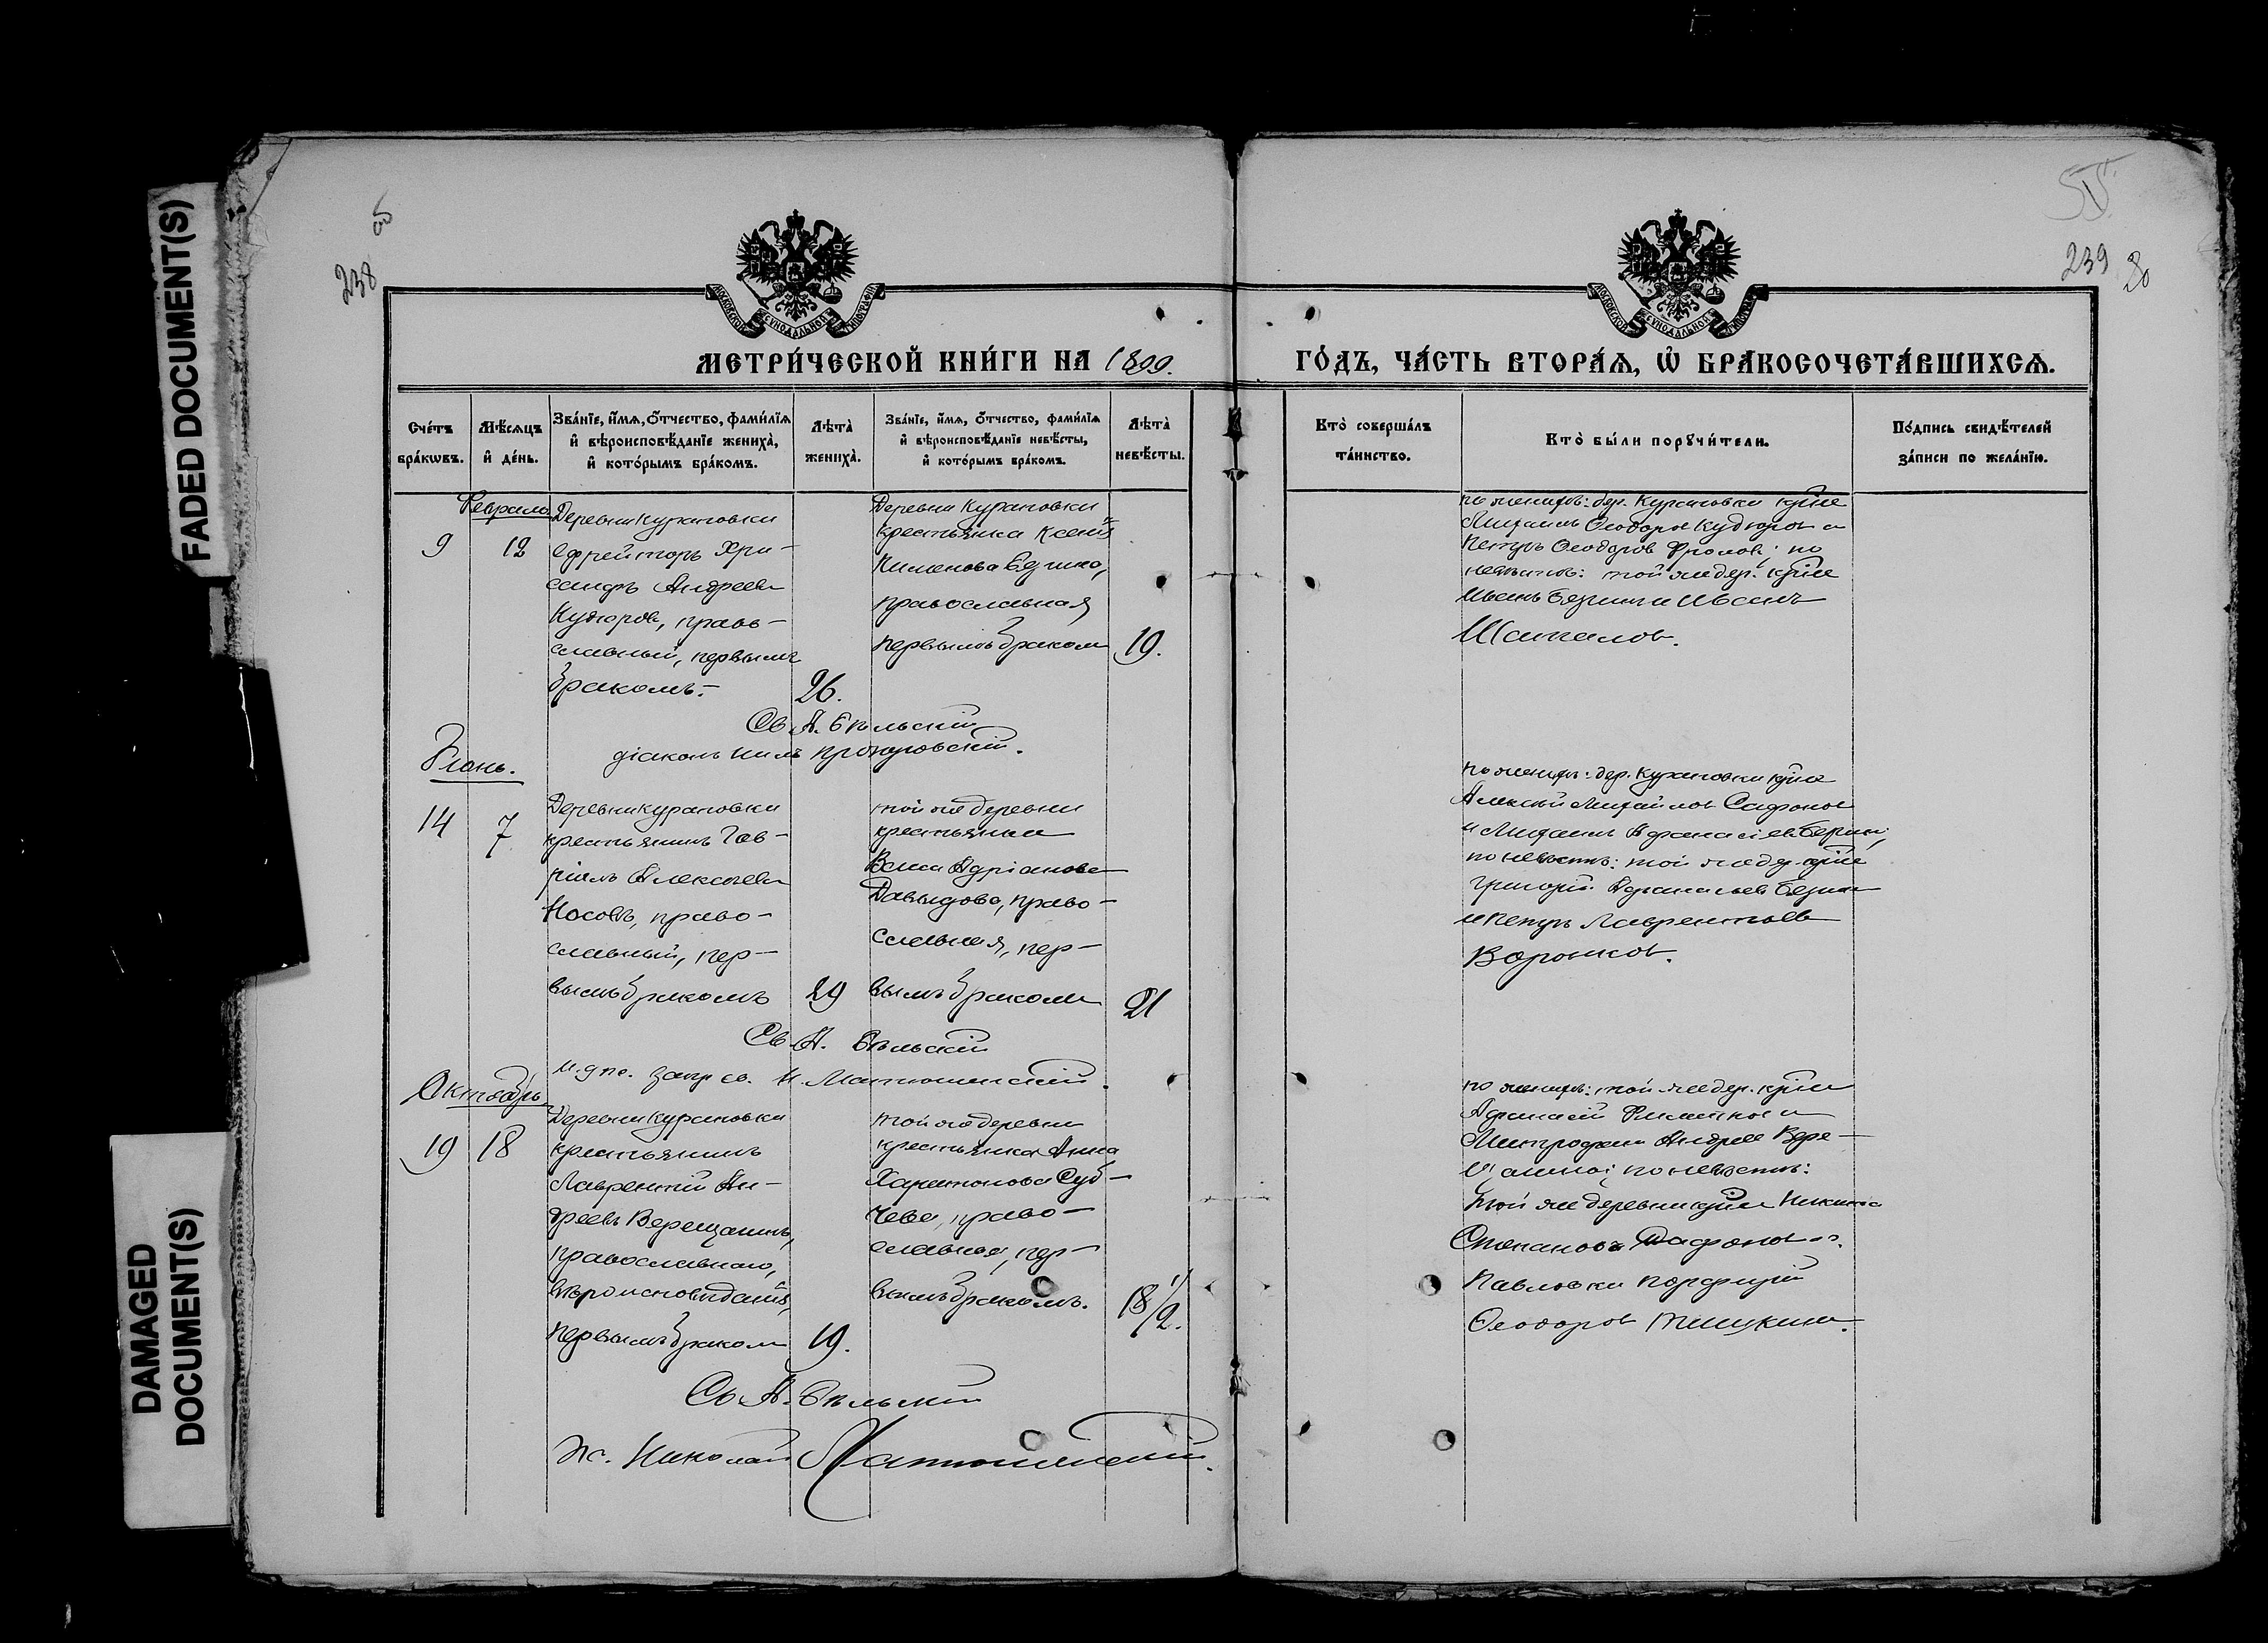 FADED DOCUMENT(S)
DAMAGED
DOCUMENT(S)
238
239
МЕТРИ́ЧЕСКОЙ КНИ́ГИ НА 1899.
ГО́ДЪ, ЧА́СТЬ ВТОРА́Ѧ, Ѡ҆ БРАКОСОЧЕТА́ВШИХСѦ.
Сче́тъ
бра́кѡвъ.
Мѣ́сѧцъ
и҆ де́нь.
Зва́нїе, и҆́мѧ, ѻ҆́тчество, фами́лїѧ
и҆ вѣроисповѣ́данїе жениха̀,
и҆ кото́рымъ бра́комъ.
Лѣ́та̀
жениха̀.
Зва́нїе, и҆́мѧ, ѻ҆́тчество, фами́лїѧ
и҆ вѣроисповѣ́данїе невѣ́сты,
и҆ кото́рымъ бра́комъ.
Лѣ́та̀
невѣ́сты.
Кто̀ соверша́лъ
та́инство.
Кто̀ бы́ли порꙋчи́тели.
По́дпись свидѣ́телей
за́писи по жела́нїю.
Февраль
9
12
Деревни Курановки
ефрейторъ Хри-
санфъ Андреевъ
Кудюровъ, право-
славный, первымъ
бракомъ.-
26.
Деревни Курановки
крестьянка Ксенія
Пименова
православная
первымъ бракомъ
19.
по женихѣ: дер. Курановки
Михаилъ Ѳеодоровъ Кудюровъ и
Петръ Ѳеодоровъ Фроловъ; по
невѣстѣ: той же дер.
Иванъ и Иванъ
Шаталовъ.
Св. А. Бѣльскій
діаконъ Нилъ
Іюнь.
14
7
Деревни Курановки
крестьянинъ Гав-
ріилъ Алексѣевъ
Носовъ, право-
славный, пер-
вымъ бракомъ
29
той же деревни
крестьянка
Адріанова
Давыдова, право-
славная, пер-
вымъ бракомъ
21
по женихѣ: дер. Курановки
Алексѣй Михайловъ Сафоновъ
и Михаилъ Афанасіевъ
по невѣстѣ: той же дер.
Григорій Афанасьевъ
и Петръ Лаврентьевъ
Воронковъ.
Св. А. Бѣльскій
Октябрь
19
18
Деревни Курановки
крестьянинъ
Лаврентій Ан-
дреевъ Верещагинъ,
православнаго,
вѣроисповѣданія,
первымъ бракомъ
19.
той же деревни
крестьянка Анна
Харитонова Суб-
чева, право-
славная, пер-
вымъ бракомъ.
18 1/2.
по женихѣ: той же дер.
Афанасій и
Митрофанъ Андреевъ Вере-
щагинъ; по невѣстѣ:
той же деревни Никита
Степановъ
Павловки Порфирій
Ѳеодоровъ
Св. А. Бѣльскій
Пс. Николай